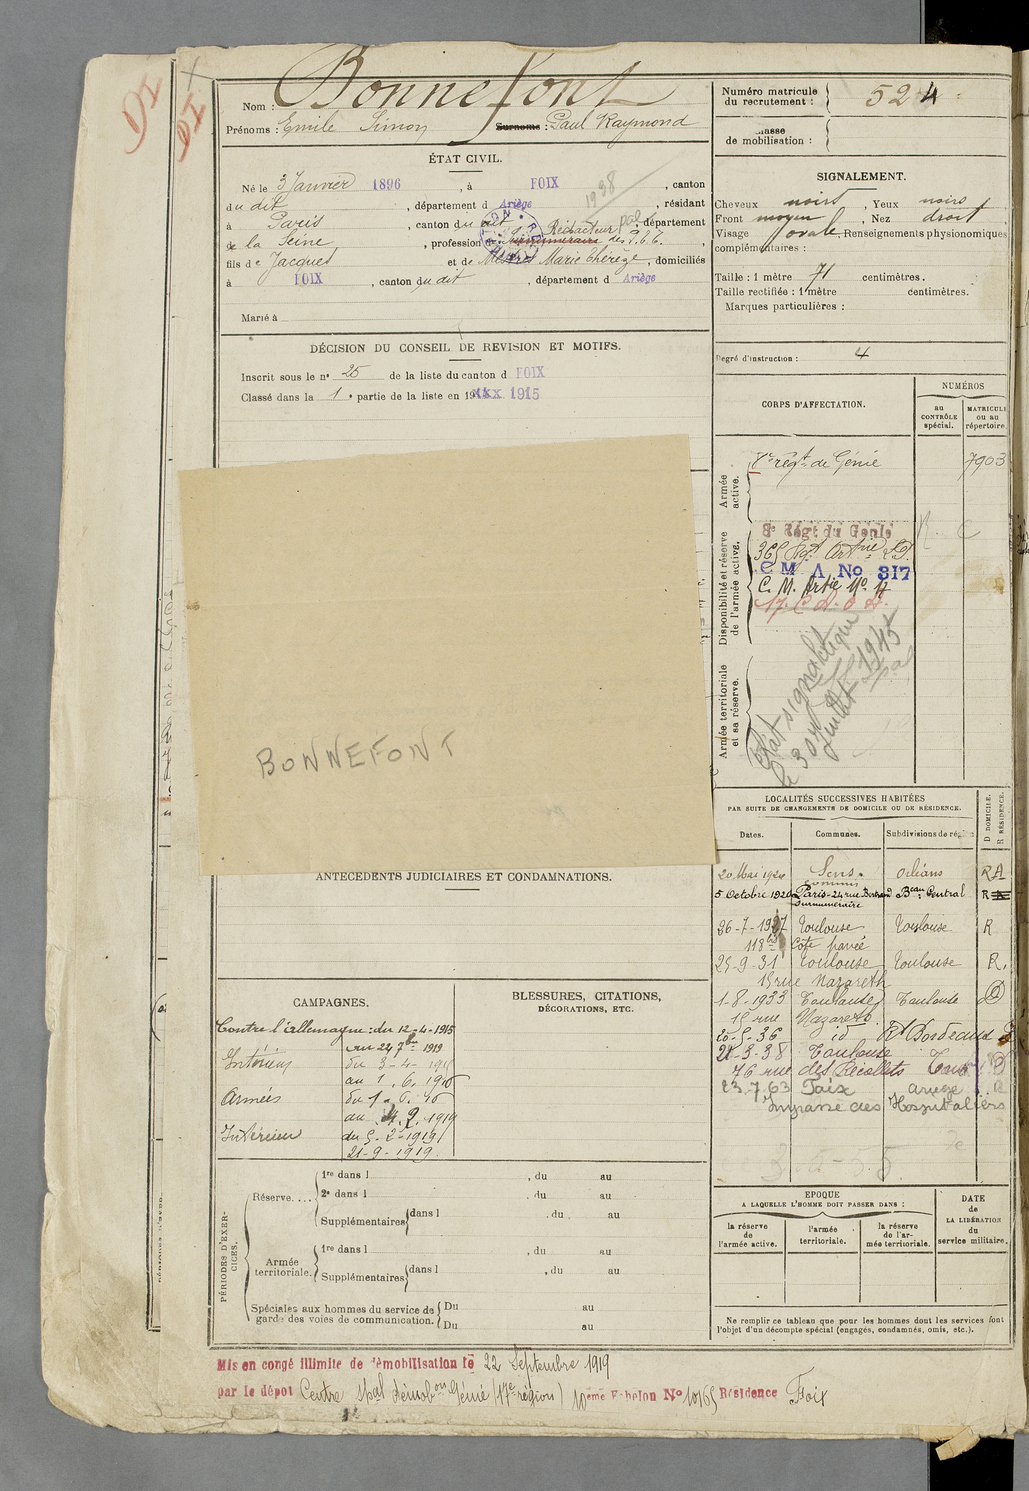 DI
DI
Nom : Bonnefont
Prénoms : Emile Simon Surnoms : Paul Raymond
ÉTAT CIVIL.
Né le 3 Janvier 1896, à FOIX, canton
du dit, département d Ariège, résidant
1938
à Paris, canton du dit, département
pal
Rédacteur
de la Seine, profession surnuméraire des P.t.t.,
fils de Jacques et de Mestres Marie Thérèze, domiciliés
à FOIX, canton du dit, département d Ariège
Marié à
DÉCISION DU CONSEIL DE REVISION ET MOTIFS.
Inscrit sous le n° 25 de la liste du canton d FOIX
Classé dans la 1e partie de la liste en 19 1915
BONNEFONT
ANTÉCÉDENTS JUDICIAIRES ET CONDAMNATIONS.
CAMPAGNES.
Contre l'allemagne : du 12-4-1915
au 24 7bre 1919
Intérieur du 3-4-1915
au 1.6.1916
Armées du 1.6.16
au 4.2.1919
Intérieur du 5-2-1919
21-9-1919.
BLESSURES, CITATIONS,
DÉCORATIONS, ETC.
PÉRIODES D'EXERCICES.
Réserve....
1re dans l , du au
2e dans l , du au
Supplémentaires dans l , du au
Armée territoriale.
1re dans l , du au
Supplémentaires dans l , du au
Spéciales aux hommes du service de garde des voies de communication.
Du au
Du au
Mis en congé illimité de démobilisation le 22 Septembre 1919
par le dépôt Centre spal démobon Génie (17e région) 10ème Echelon No 10165 Résidence Foix
Numéro matricule
du recrutement : 524
Classe
de mobilisation :
SIGNALEMENT.
Cheveux noirs, Yeux noirs
Front moyen, Nez droit
Visage ovale, Renseignements physionomiques
complémentaires :
Taille : 1 mètre 71 centimètres.
Taille rectifiée : 1 mètre centimètres.
Marques particulières :
Degré d'instruction : 4
CORPS D'AFFECTATION.
NUMÉROS
au
CONTRÔLE
spécial.
MATRICULE
ou au
répertoire.
Armée
active.
8e régt de Génie 7903
Disponibilité et réserve
de l'armée active.
8e Régt du Génie
365 Rgt Artrie L.D.
C M A No 317
C. M. Artie No 17
Armée territoriale
et sa réserve.
Etat signalétique
le 30 Juillet 1945
LOCALITÉS SUCCESSIVES HABITÉES
PAR SUITE DE CHANGEMENTS DE DOMICILE OU DE RÉSIDENCE.
Dates. Communes. Subdivisions de région
D DOMICILE.
R RÉSIDENCE.
20 Mai 1920 Sens. Orléans R A
Commis
5 Octobre 1920 Paris - 24 rue Bertrand Beau Central R
surnuméraire
26-7-1927 Toulouse Toulouse R
118 bis Côte pavée
25-9-31 Toulouse Toulouse R.
15 rue Nazareth
1-8-1933 Toulouse Toulouse D
15 rue Nazareth
20-5-36 id Rt Bordeaux
21-3-38 Toulouse
76 rue des Récollets D
23.7.63 Foix Ariège R
Impasse des Hospitaliers
EPOQUE
A LAQUELLE L'HOMME DOIT PASSER DANS :
la réserve
de
l'armée active.
l'armée
territoriale.
la réserve
de l'ar-
mée territoriale.
DATE
de
LA LIBÉRATION
du
service militaire.
Ne remplir ce tableau que pour les hommes dont les services font
l'objet d'un décompte spécial (engagés, condamnés, omis, etc.).